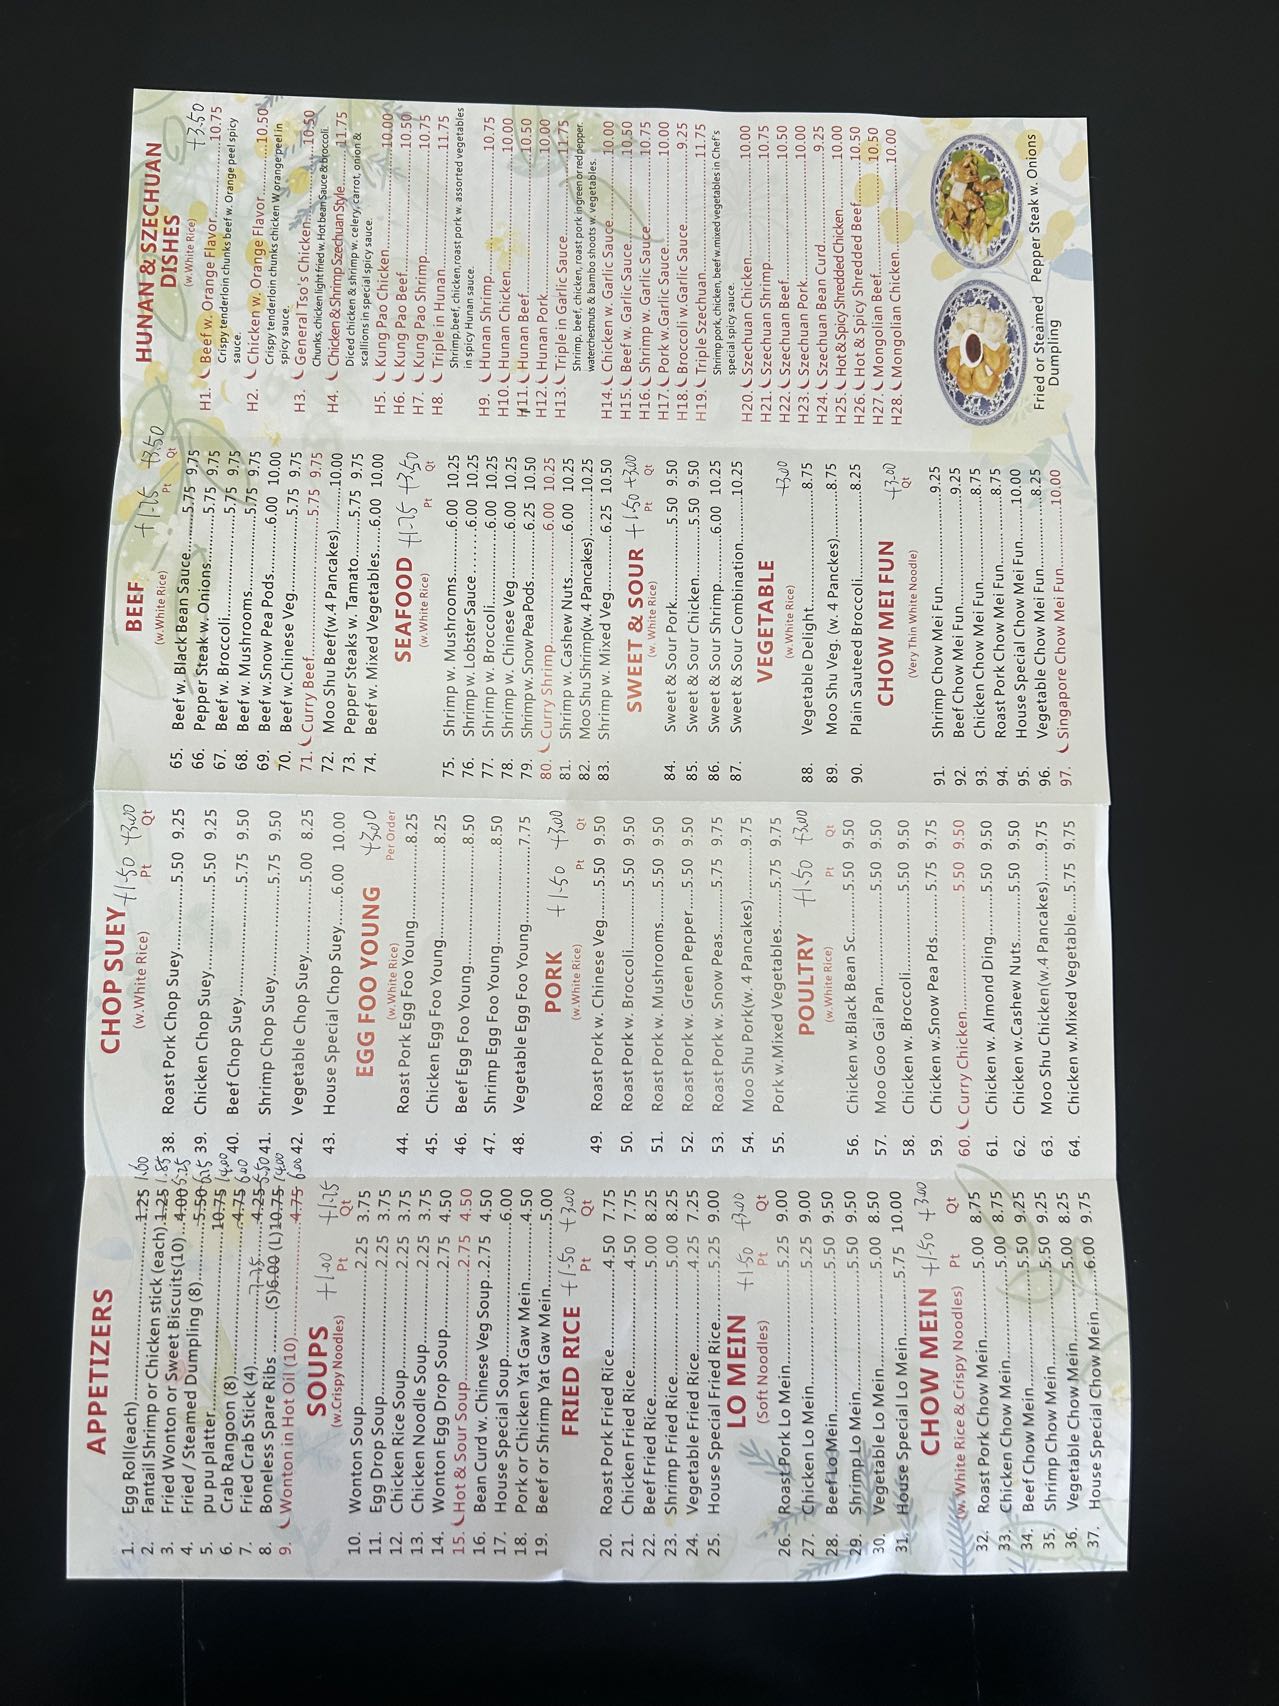 APPETIZERS
1. Egg Roll(each)......1.25 1.60
2. Fantail Shrimp or Chicken stick (each).1.25 1.85
3. Fried Wonton or Sweet Biscuits(10)..4.00 5.25
4. Fried / Steamed Dumpling (8)......5.50 6.75
5. pu pu platter......10.75 14.00
6. Crab Rangoon (8)......4.75 6.00
7. Fried Crab Stick (4)......4.25 5.50
8. Boneless Spare Ribs ......(S)6.00 (L)10.75 14.00
7.75
9. Wonton in Hot Oil (10)......4.75 6.00
SOUPS +1.00 +1.75
(w.Crispy Noodles) Pt Qt
10. Wonton Soup......2.25 3.75
11. Egg Drop Soup......2.25 3.75
12. Chicken Rice Soup......2.25 3.75
13. Chicken Noodle Soup......2.25 3.75
14. Wonton Egg Drop Soup......2.75 4.50
15. Hot & Sour Soup......2.75 4.50
16. Bean Curd w. Chinese Veg Soup..2.75 4.50
17. House Special Soup......6.00
18. Pork or Chicken Yat Gaw Mein......4.50
19. Beef or Shrimp Yat Gaw Mein......5.00
FRIED RICE +1.50 +3.00
Pt Qt
20. Roast Pork Fried Rice......4.50 7.75
21. Chicken Fried Rice......4.50 7.75
22. Beef Fried Rice......5.00 8.25
23. Shrimp Fried Rice......5.00 8.25
24. Vegetable Fried Rice......4.25 7.25
25. House Special Fried Rice......5.25 9.00
LO MEIN +1.50 +3.00
(Soft Noodles) Pt Qt
26. Roast Pork Lo Mein......5.25 9.00
27. Chicken Lo Mein......5.25 9.00
28. Beef Lo Mein......5.50 9.50
29. Shrimp Lo Mein......5.50 9.50
30. Vegetable Lo Mein......5.00 8.50
31. House Special Lo Mein......5.75 10.00
CHOW MEIN +1.50 +3.00
(w. White Rice & Crispy Noodles) Pt Qt
32. Roast Pork Chow Mein......5.00 8.75
33. Chicken Chow Mein......5.00 8.75
34. Beef Chow Mein......5.50 9.25
35. Shrimp Chow Mein......5.50 9.25
36. Vegetable Chow Mein......5.00 8.25
37. House Special Chow Mein......6.00 9.75
CHOP SUEY +1.50 +3.00
(w.White Rice) Pt Qt
38. Roast Pork Chop Suey......5.50 9.25
39. Chicken Chop Suey......5.50 9.25
40. Beef Chop Suey......5.75 9.50
41. Shrimp Chop Suey......5.75 9.50
42. Vegetable Chop Suey......5.00 8.25
43. House Special Chop Suey......6.00 10.00
EGG FOO YOUNG +3.00
(w.White Rice) Per Order
44. Roast Pork Egg Foo Young......8.25
45. Chicken Egg Foo Young......8.25
46. Beef Egg Foo Young......8.50
47. Shrimp Egg Foo Young......8.50
48. Vegetable Egg Foo Young......7.75
PORK +1.50 +3.00
(w.White Rice) Pt Qt
49. Roast Pork w. Chinese Veg......5.50 9.50
50. Roast Pork w. Broccoli......5.50 9.50
51. Roast Pork w. Mushrooms......5.50 9.50
52. Roast Pork w. Green Pepper......5.50 9.50
53. Roast Pork w. Snow Peas......5.75 9.75
54. Moo Shu Pork(w. 4 Pancakes)......9.75
55. Pork w.Mixed Vegetables......5.75 9.75
POULTRY +1.50 +3.00
(w.White Rice) Pt Qt
56. Chicken w.Black Bean Sc......5.50 9.50
57. Moo Goo Gai Pan......5.50 9.50
58. Chicken w. Broccoli......5.50 9.50
59. Chicken w.Snow Pea Pds......5.75 9.75
60. Curry Chicken......5.50 9.50
61. Chicken w. Almond Ding......5.50 9.50
62. Chicken w.Cashew Nuts......5.50 9.50
63. Moo Shu Chicken(w.4 Pancakes)......9.75
64. Chicken w.Mixed Vegetable...5.75 9.75
BEEF +1.75 +3.50
(w.White Rice) Pt Qt
65. Beef w. Black Bean Sauce......5.75 9.75
66. Pepper Steak w. Onions......5.75 9.75
67. Beef w. Broccoli......5.75 9.75
68. Beef w. Mushrooms......5.75 9.75
69. Beef w.Snow Pea Pods......6.00 10.00
70. Beef w.Chinese Veg......5.75 9.75
71. Curry Beef......5.75 9.75
72. Moo Shu Beef(w.4 Pancakes)......10.00
73. Pepper Steaks w. Tomato ......5.75 9.75
74. Beef w. Mixed Vegetables...6.00 10.00
SEAFOOD +1.75 +3.50
(w.White Rice) Pt Qt
75. Shrimp w. Mushrooms......6.00 10.25
76. Shrimp w. Lobster Sauce......6.00 10.25
77. Shrimp w. Broccoli......6.00 10.25
78. Shrimp w. Chinese Veg......6.00 10.25
79. Shrimp w. Snow Pea Pods......6.25 10.50
80. Curry Shrimp......6.00 10.25
81. Shrimp w. Cashew Nuts......6.00 10.25
82. Moo Shu Shrimp(w.4 Pancakes)......10.25
83. Shrimp w. Mixed Veg......6.25 10.50
SWEET & SOUR +1.50 +3.00
(w. White Rice) Pt Qt
84. Sweet & Sour Pork......5.50 9.50
85. Sweet & Sour Chicken......5.50 9.50
86. Sweet & Sour Shrimp......6.00 10.25
87. Sweet & Sour Combination......10.25
VEGETABLE
(w.White Rice) +3.00
88. Vegetable Delight......8.75
89. Moo Shu Veg. (w. 4 Panckes)......8.75
90. Plain Sauteed Broccoli......8.25
CHOW MEI FUN +3.00
(Very Thin White Noodle) Qt
91. Shrimp Chow Mei Fun......9.25
92. Beef Chow Mei Fun......9.25
93. Chicken Chow Mei Fun......8.75
94. Roast Pork Chow Mei Fun......8.75
95. House Special Chow Mei Fun......10.00
96. Vegetable Chow Mei Fun......8.25
97. Singapore Chow Mei Fun......10.00
HUNAN & SZECHUAN
DISHES
(w. White Rice) +3.50
H1. Beef w. Orange Flavor......10.75
Crispy tenderloin chunks beef w. Orange peel spicy
sauce.
H2. Chicken w. Orange Flavor......10.50
Crispy tenderloin chunks chicken W orange peel in
spicy sauce.
H3. General Tso's Chicken......10.50
Chunks, chicken light fried w. Hot bean Sauce & broccoli.
H4. Chicken & Shrimp Szechuan Style......11.75
Diced chicken & shrimp w. celery, carrot, onion &
scallions in special spicy sauce.
H5. Kung Pao Chicken......10.00
H6. Kung Pao Beef......10.50
H7. Kung Pao Shrimp......10.75
H8. Triple in Hunan......11.75
Shrimp, beef, chicken, roast pork w. assorted vegetables
in spicy Hunan sauce.
H9. Hunan Shrimp......10.75
H10. Hunan Chicken......10.00
H11. Hunan Beef......10.50
H12. Hunan Pork......10.00
H13. Triple in Garlic Sauce......11.75
Shrimp, beef, chicken, roast pork in green or red pepper.
waterchestnuts & bamboo shoots w. vegetables.
H14. Chicken w. Garlic Sauce......10.00
H15. Beef w. Garlic Sauce......10.50
H16. Shrimp w. Garlic Sauce......10.75
H17. Pork w. Garlic Sauce......10.00
H18. Broccoli w. Garlic Sauce......9.25
H19. Triple Szechuan......11.75
Shrimp pork, chicken, beef w. mixed vegetables in Chef's
special spicy sauce.
H20. Szechuan Chicken......10.00
H21. Szechuan Shrimp......10.75
H22. Szechuan Beef......10.50
H23. Szechuan Pork......10.00
H24. Szechuan Bean Curd......9.25
H25. Hot & Spicy Shredded Chicken......10.00
H26. Hot & Spicy Shredded Beef......10.50
H27. Mongolian Beef......10.50
H28. Mongolian Chicken......10.00
Fried or Steamed
Dumpling
Pepper Steak w. Onions